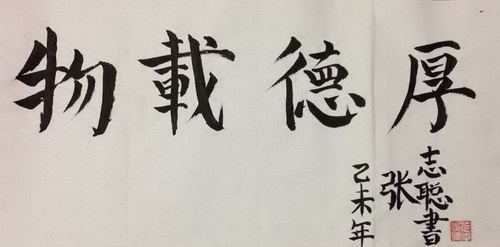 厚德載物
志聪書
张
乙未年